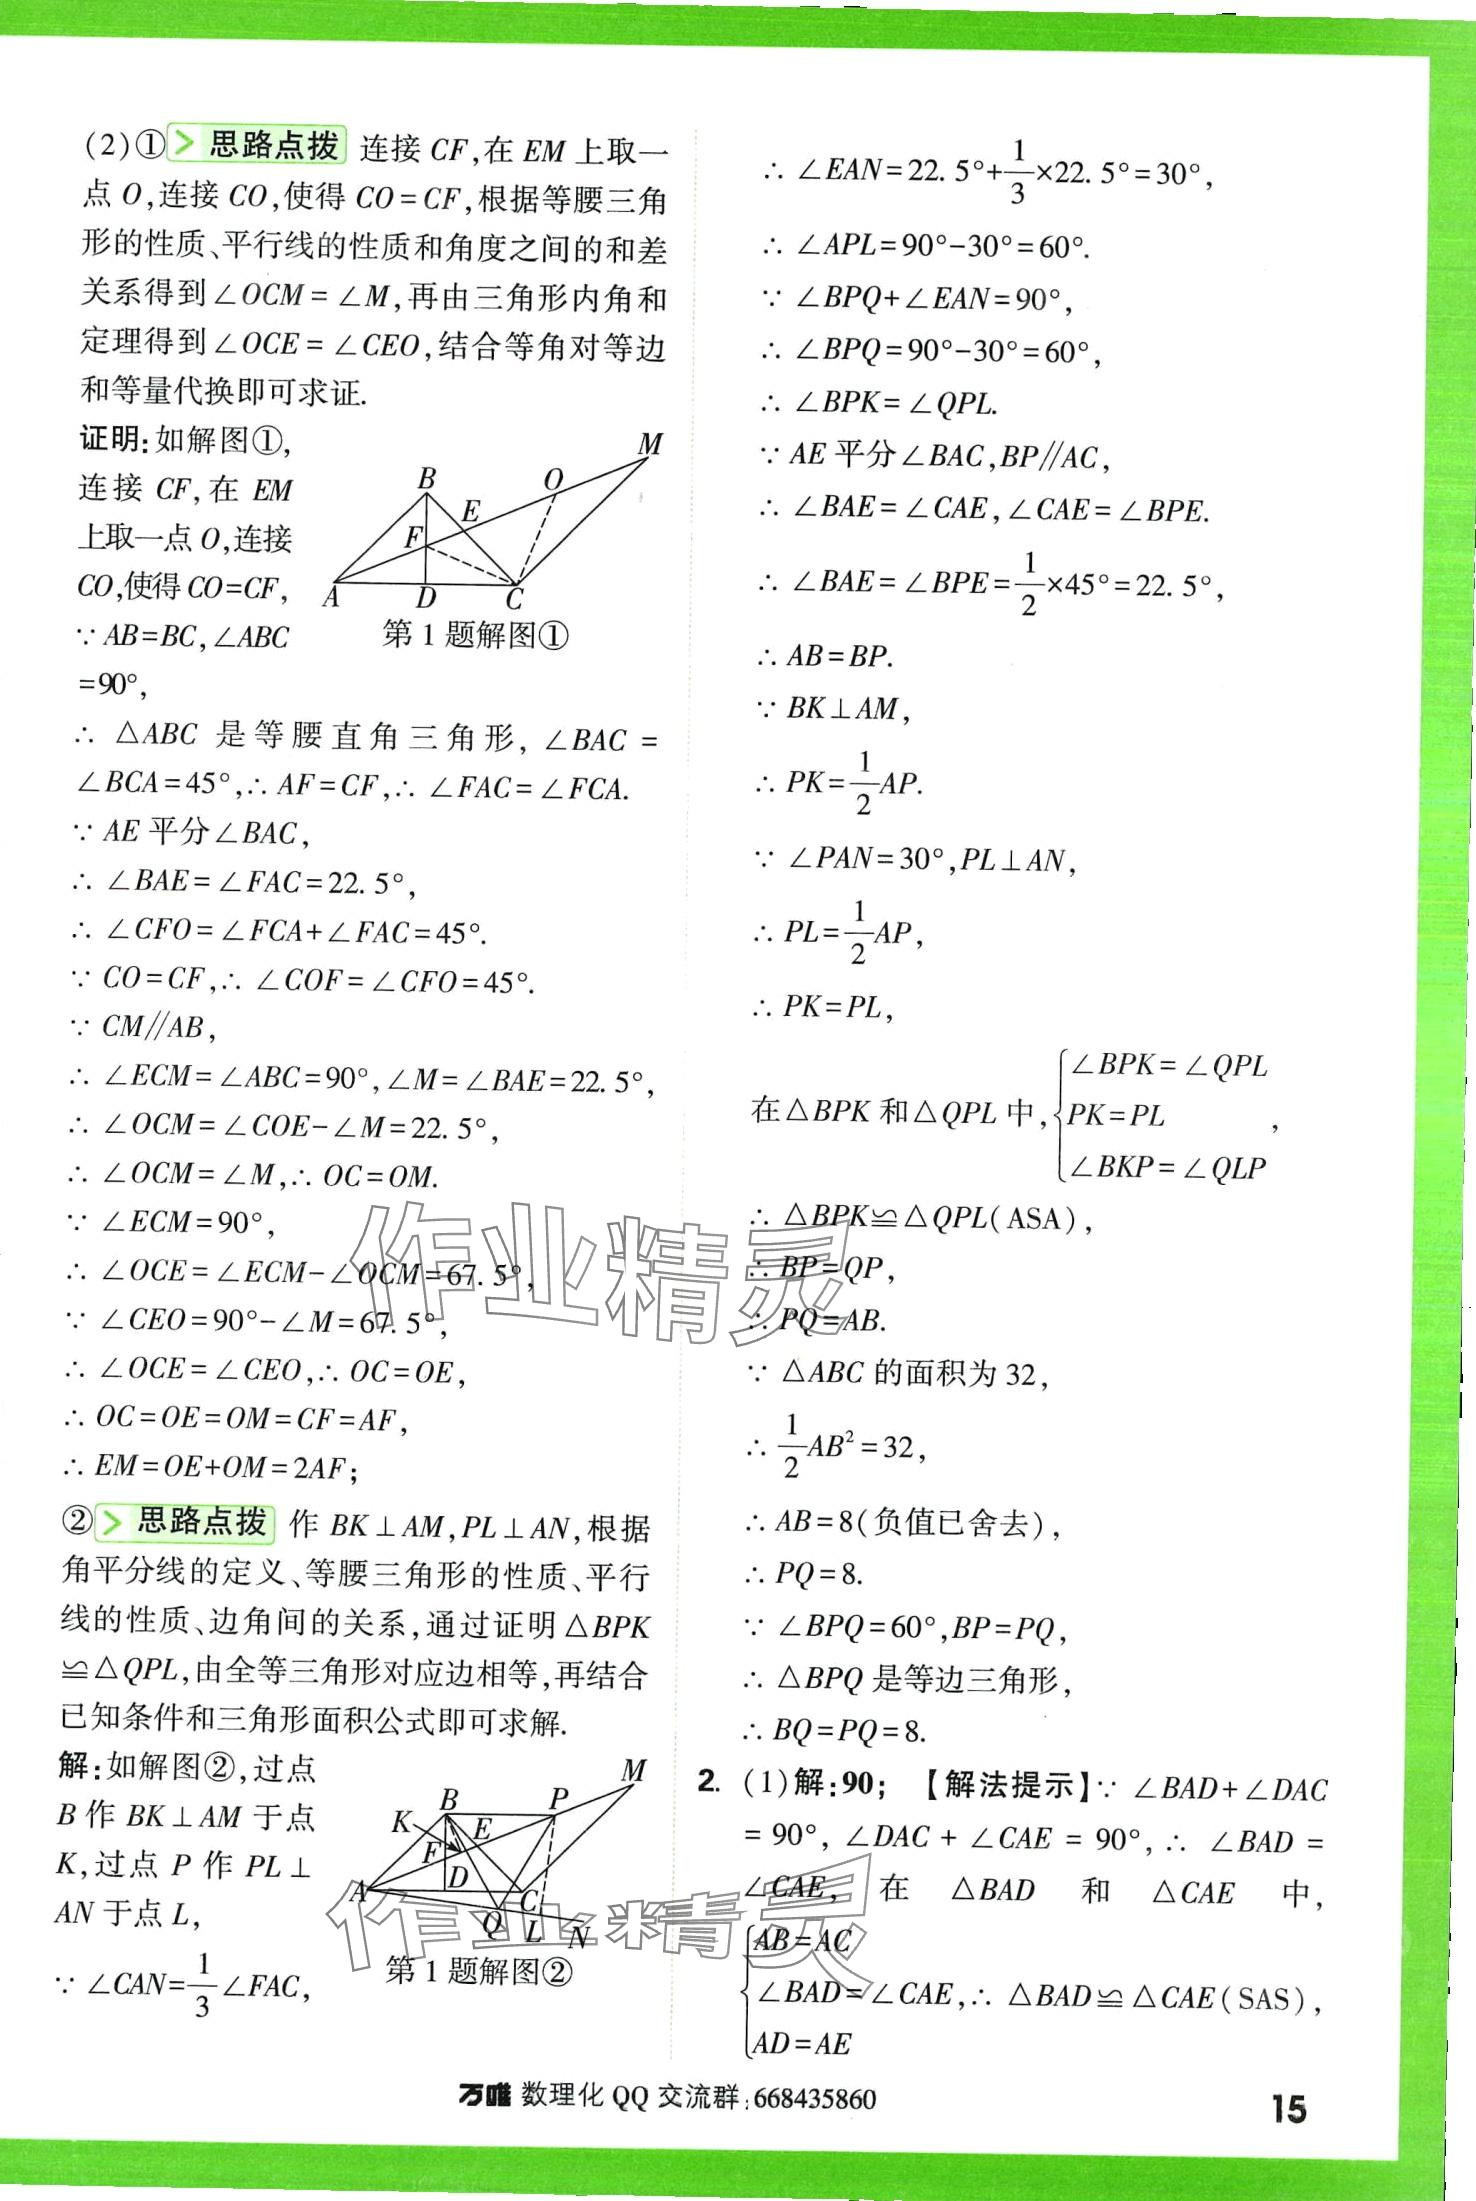 (2)①> 思路点拨 连接 CF,在 EM 上取一
点 O,连接 CO,使得 CO=CF,根据等腰三角
形的性质、平行线的性质和角度之间的和差
关系得到∠OCM=∠M,再由三角形内角和
定理得到∠OCE=∠CEO,结合等角对等边
和等量代换即可求证.
证明:如解图①,
连接 CF,在 EM
上取一点 O,连接
CO,使得 CO=CF,
∵ AB=BC,∠ABC
=90°,
M
B
O
E
F
A
D
C
第 1 题解图①
∴ △ABC 是等腰直角三角形, ∠BAC =
∠BCA=45°,∴ AF=CF,∴ ∠FAC=∠FCA.
∵ AE 平分∠BAC,
∴ ∠BAE=∠FAC=22. 5°,
∴ ∠CFO=∠FCA+∠FAC=45°.
∵ CO=CF,∴ ∠COF=∠CFO=45°.
∵ CM∥AB,
∴ ∠ECM=∠ABC=90°,∠M=∠BAE=22. 5°,
∴ ∠OCM=∠COE-∠M=22. 5°,
∴ ∠OCM=∠M,∴ OC=OM.
∵ ∠ECM=90°,
∴ ∠OCE=∠ECM-∠OCM=67. 5°,
∵ ∠CEO=90°-∠M=67. 5°,
∴ ∠OCE=∠CEO,∴ OC=OE,
∴ OC=OE=OM=CF=AF,
∴ EM=OE+OM=2AF;
②> 思路点拨 作 BK⊥AM,PL⊥AN,根据
角平分线的定义、等腰三角形的性质、平行
线的性质、边角间的关系,通过证明△BPK
≌△QPL,由全等三角形对应边相等,再结合
已知条件和三角形面积公式即可求解.
解:如解图②,过点
B 作 BK⊥AM 于点
K,过点 P 作 PL⊥
AN 于点 L,
∵ ∠CAN=1/3∠FAC,
M
B
P
K
E
F
D
A
C
Q
L
N
第 1 题解图②
∴ ∠EAN=22. 5°+1/3×22. 5°=30°,
∴ ∠APL=90°-30°=60°.
∵ ∠BPQ+∠EAN=90°,
∴ ∠BPQ=90°-30°=60°,
∴ ∠BPK=∠QPL.
∵ AE 平分∠BAC,BP∥AC,
∴ ∠BAE=∠CAE,∠CAE=∠BPE.
∴ ∠BAE=∠BPE=1/2×45°=22. 5°,
∴ AB=BP.
∵ BK⊥AM,
∴ PK=1/2AP.
∵ ∠PAN=30°,PL⊥AN,
∴ PL=1/2AP,
∴ PK=PL,
∠BPK=∠QPL
在△BPK 和△QPL 中,{PK=PL,
∠BKP=∠QLP
∴ △BPK≌△QPL(ASA),
∴ BP=QP,
∴ PQ=AB.
∵ △ABC 的面积为 32,
∴ 1/2AB²=32,
∴ AB=8(负值已舍去),
∴ PQ=8.
∵ ∠BPQ=60°,BP=PQ,
∴ △BPQ 是等边三角形,
∴ BQ=PQ=8.
2. (1)解:90; 【解法提示】∵ ∠BAD+∠DAC
= 90°, ∠DAC + ∠CAE = 90°, ∴ ∠BAD =
∠CAE, 在 △BAD 和 △CAE 中,
AB=AC
{∠BAD=∠CAE,∴ △BAD≌△CAE(SAS),
AD=AE
作业精灵
作业精灵
万唯 数理化 QQ 交流群:668435860
15